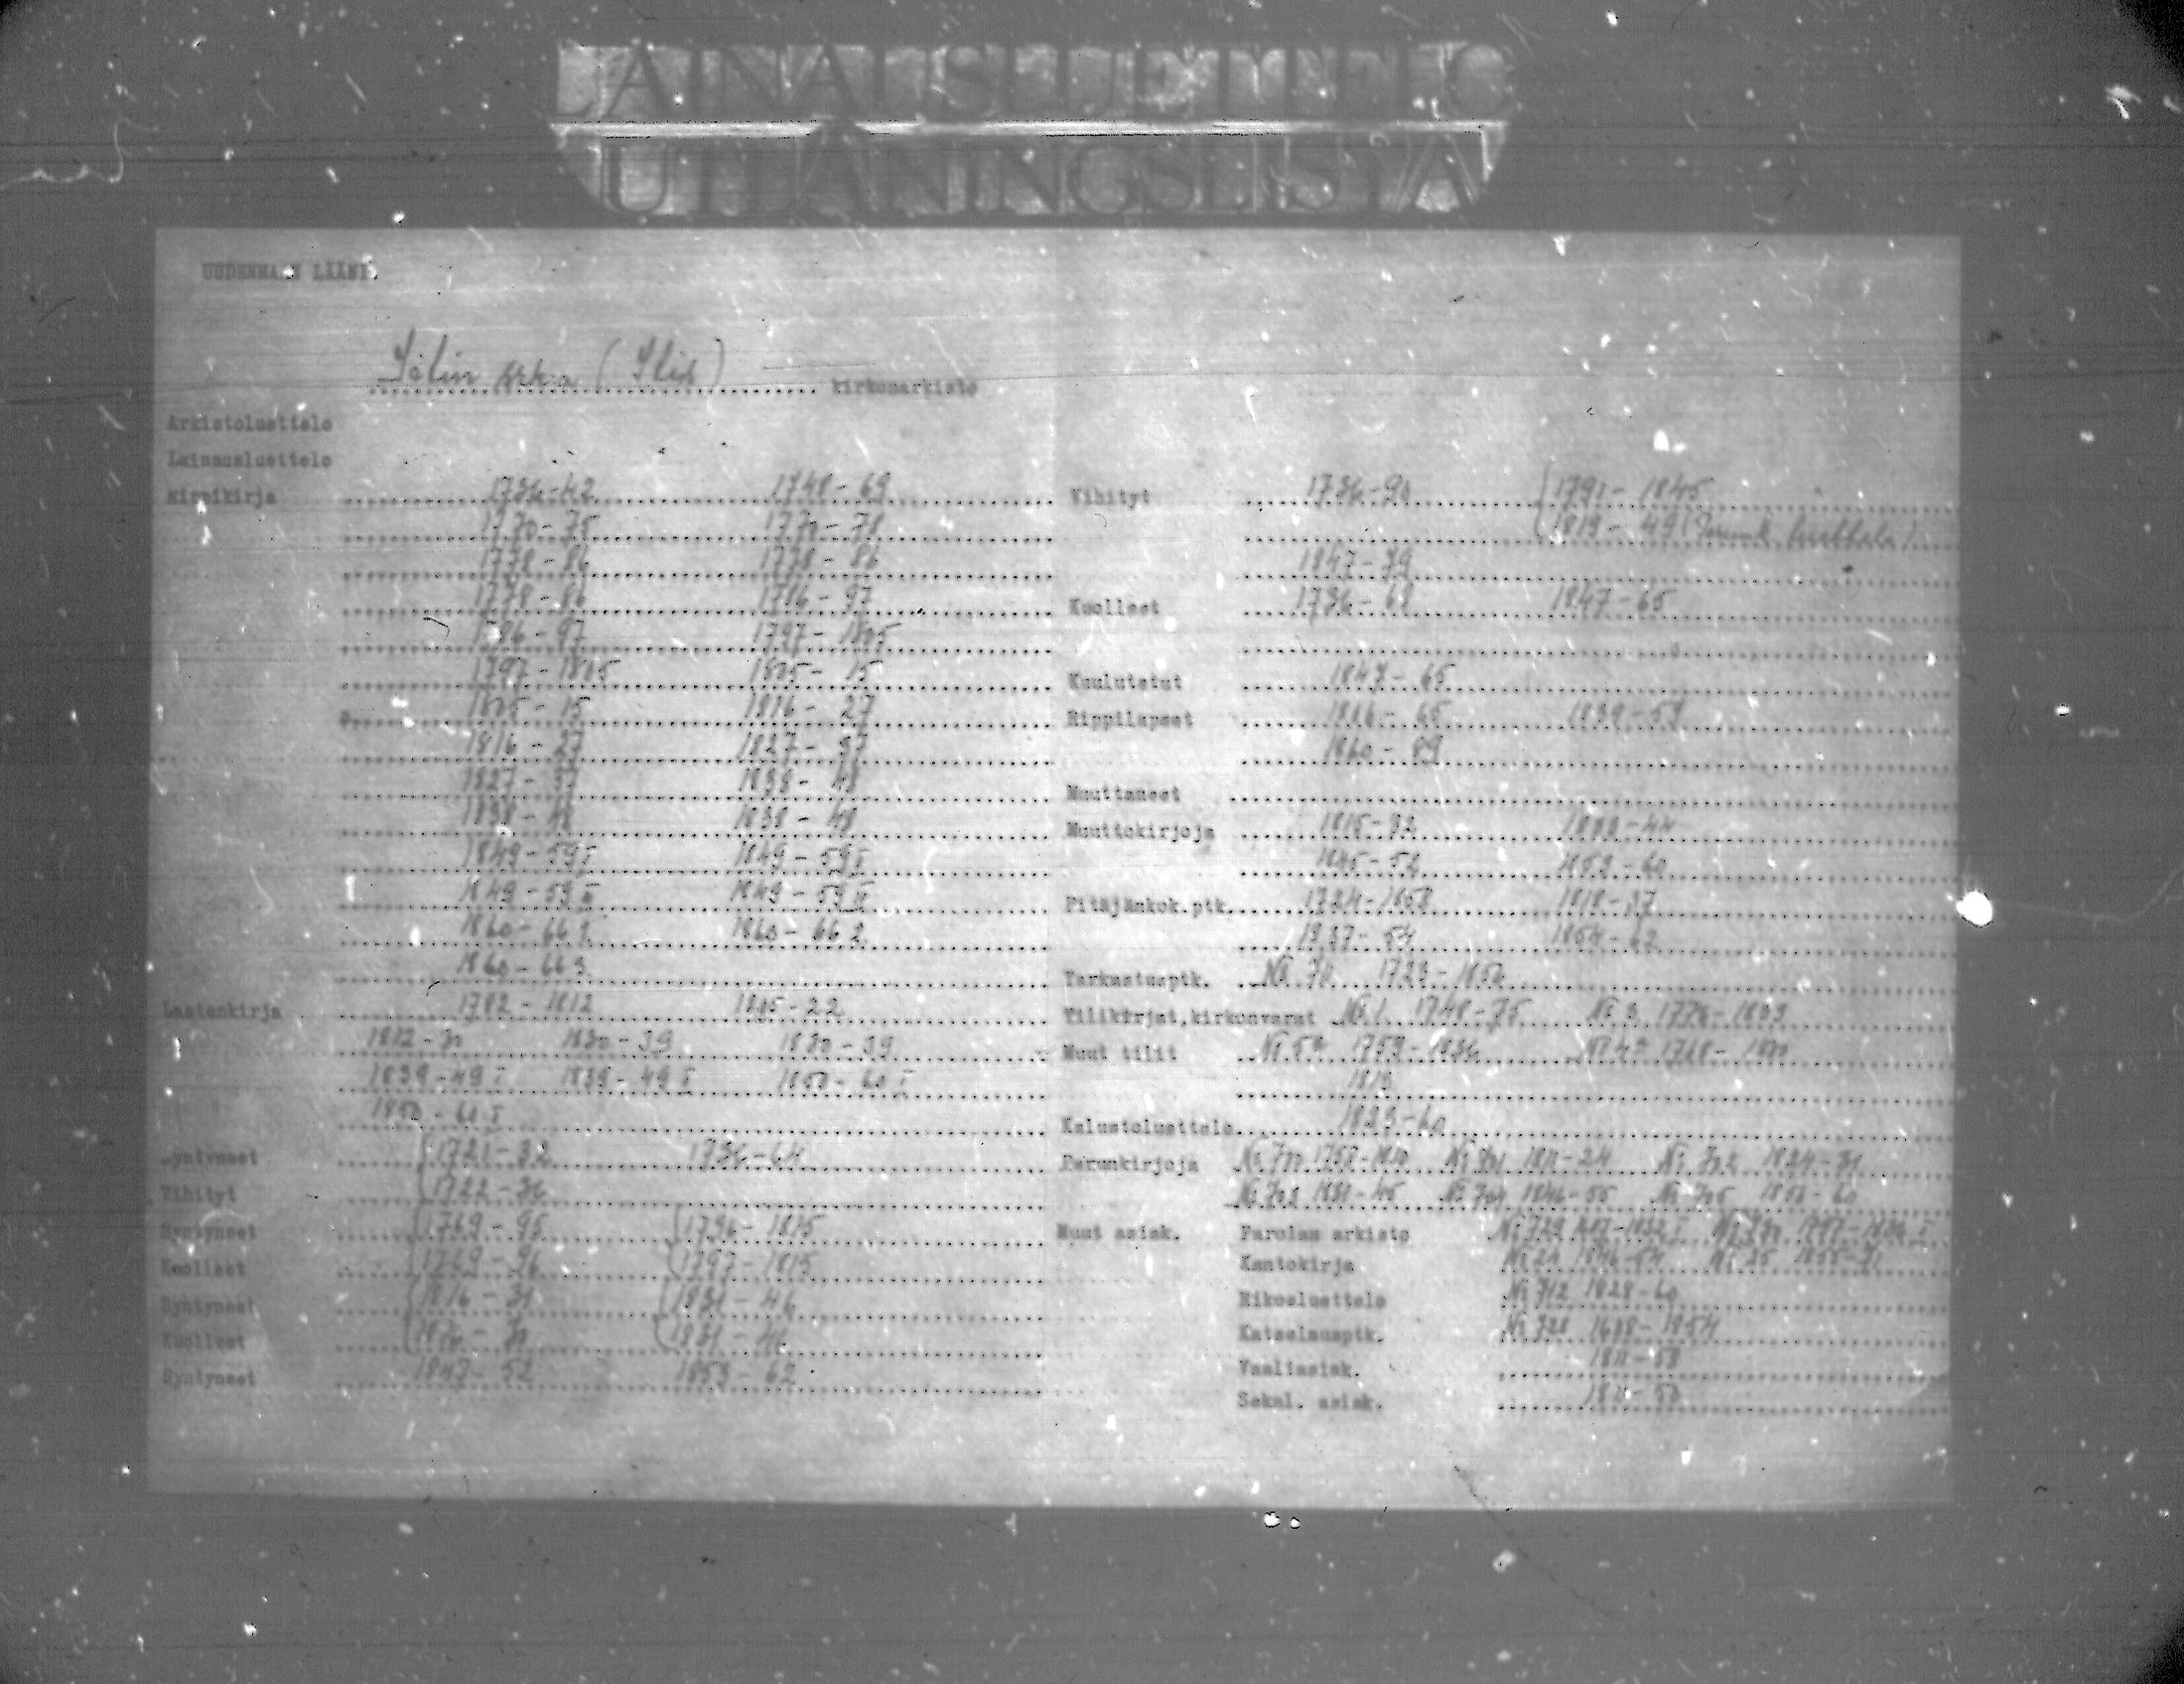 LAINAUSLUETTELO
UTLÅNINGSLISTA
UUDENMAAN LÄÄNI.
kirkonarkisto
Arkistoluettelo
Lainausluettelo
Rippikirja 1736-42 1748-69
1770-75 1770-78
1778-86 1778-86
1778-86 1786-97
1786-97 1797-1805
1797-1805 1805-15
1805-15 1816-27
1816-27 1827-37
1827-37 1838-48
1838-48 1838-48
1849-59 I 1849-59 I
1849-59 II 1849-59 II
1860-66 1 1860-66 2
1860-66 3
Lastenkirja 1782-1812 1805-22
1812-30 1830-39 1830-39
1839-49 I 1839-49 I 1850-60 I
1850-60 I
Syntyneet 1721-32 1736-68
Vihityt 1722-36
Syntyneet 1769-95 1796-1815
Kuolleet 1769-96 1797-1815
Syntyneet 1816-31 1831-46
Kuolleet 1831-46
Syntyneet 1847-52 1853-62
Vihityt 1736-90 1791-1845
1819-49
1847-79
Kuolleet 1736-68 1847-65
Kuulutetut 1847-65
Rippilapset 1816-65 1839-59
1860-89
Muuttaneet
Muuttokirjoja 1815-32 1833-44
1845-52 1853-60
Pitäjänkok.ptk. 1724-1858 1818-37
1837-54 1854-62
Tarkastusptk. 1723-1850
Tilikirjat, kirkonvarat No 1 1748-75 No 3 1776-1803
Muut tilit 1759-1836
1813
Kalustoluettelo 1823-60
Perunkirjoja No 700 1758-1810 No 701 1811-24 No 702 1824-31
No 703 1831-45 No 704 1846-55 No 705 1856-60
Muut asiak. Parolan arkisto
Kantokirja No 24 1846-54 No 25 1855-71
Rikosluettelo No 712 1828-60
Katselmusptk. No 728
Vaaliasiak. 1811-58
Sekal. asiak. 1811-50